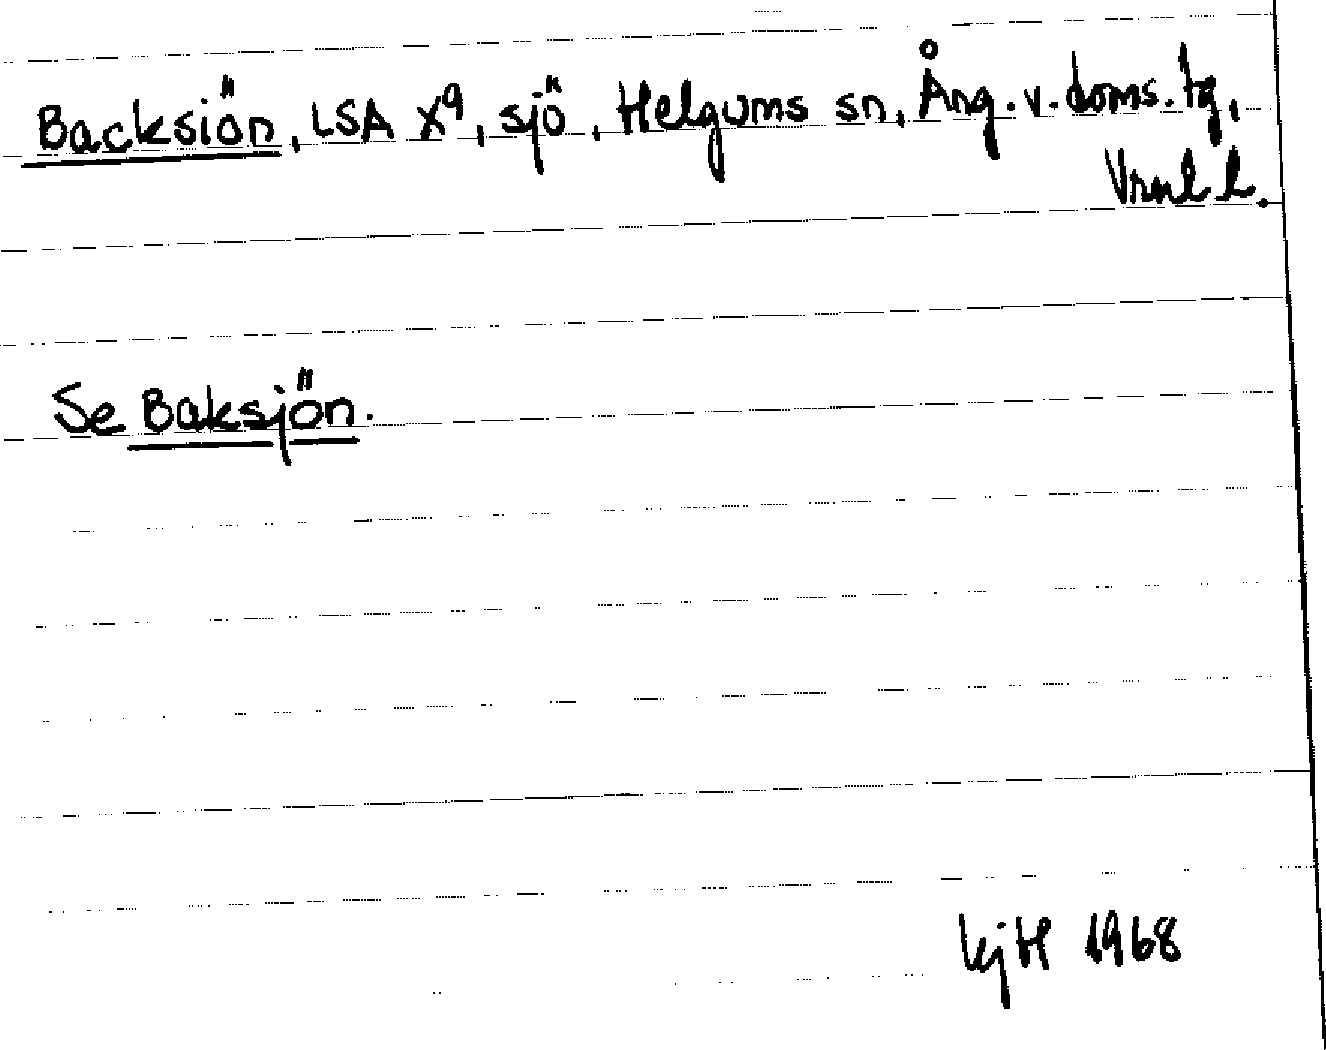 Backsiön, LSA X9, sjö, Helgums sn, Ång. v. doms. tg,
Vrnl l.
Se Baksjön.
KjH 1968